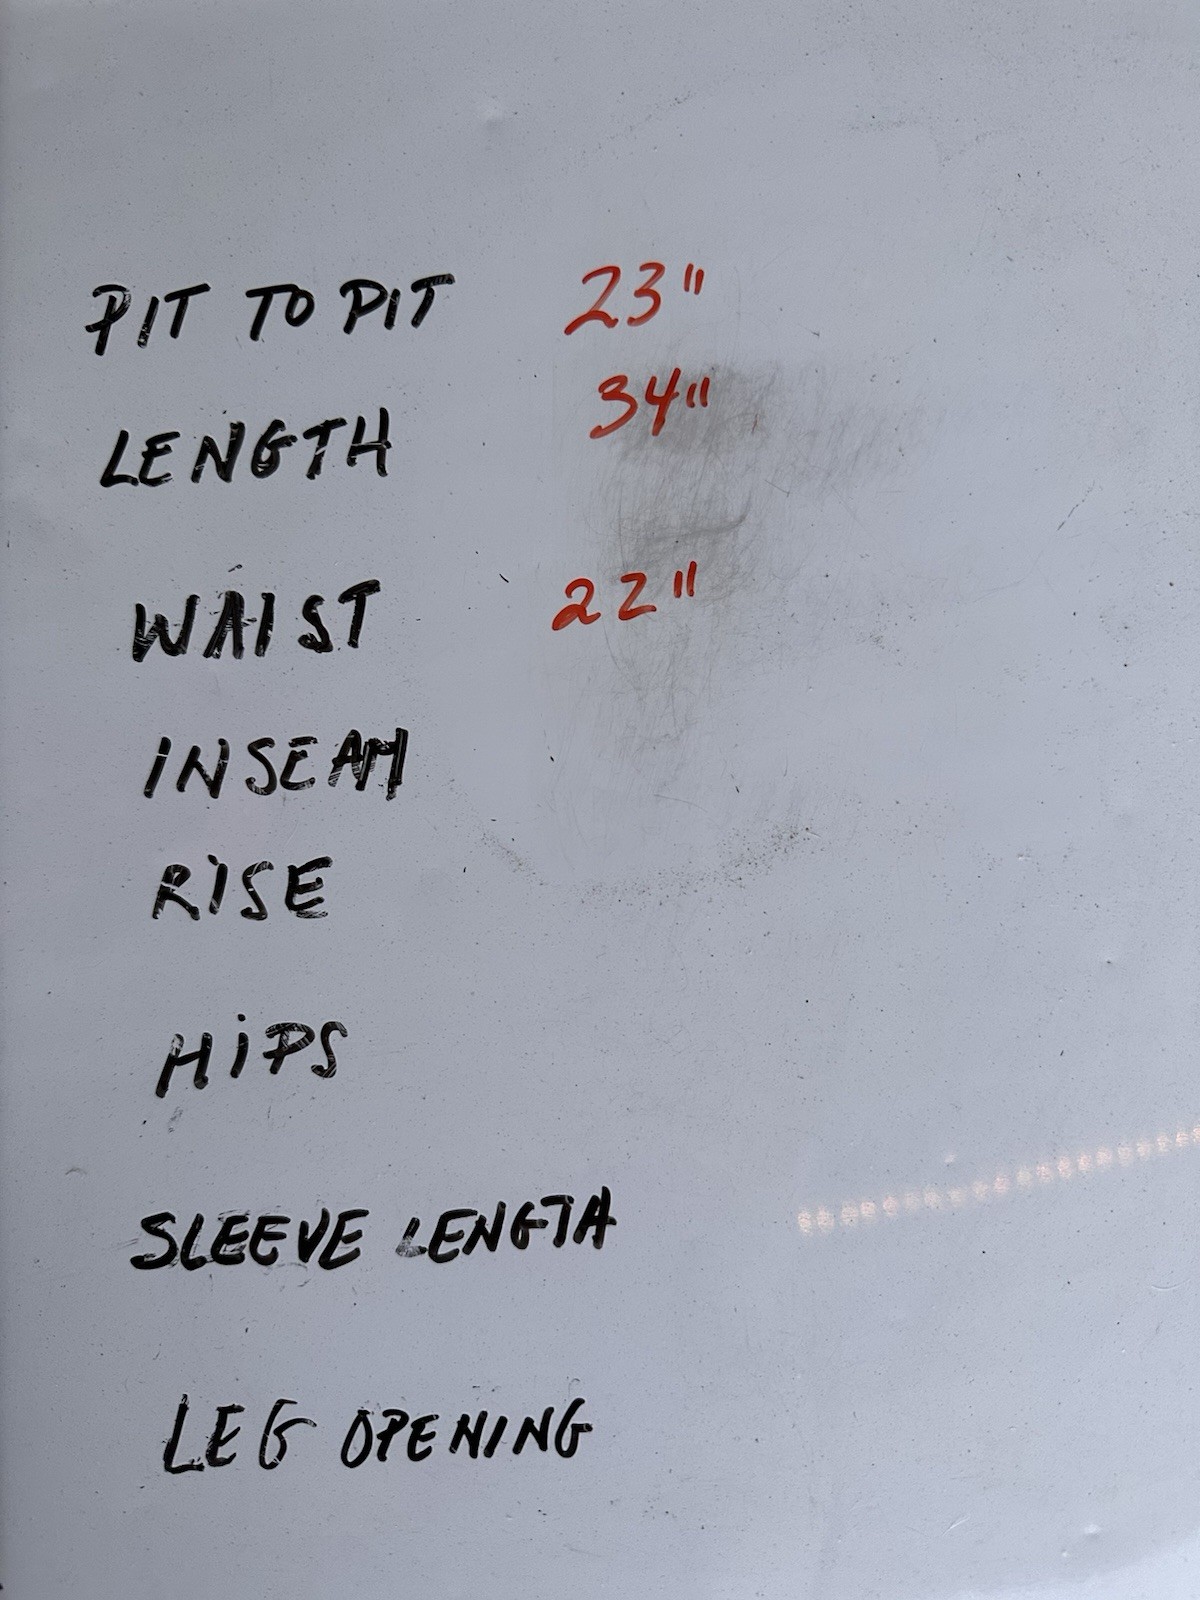 PIT TO PIT 23"
LENGTH 34"
WAIST 22"
INSEAM
RISE
HiPS
SLEEVE LENGTH
LEG OPENING